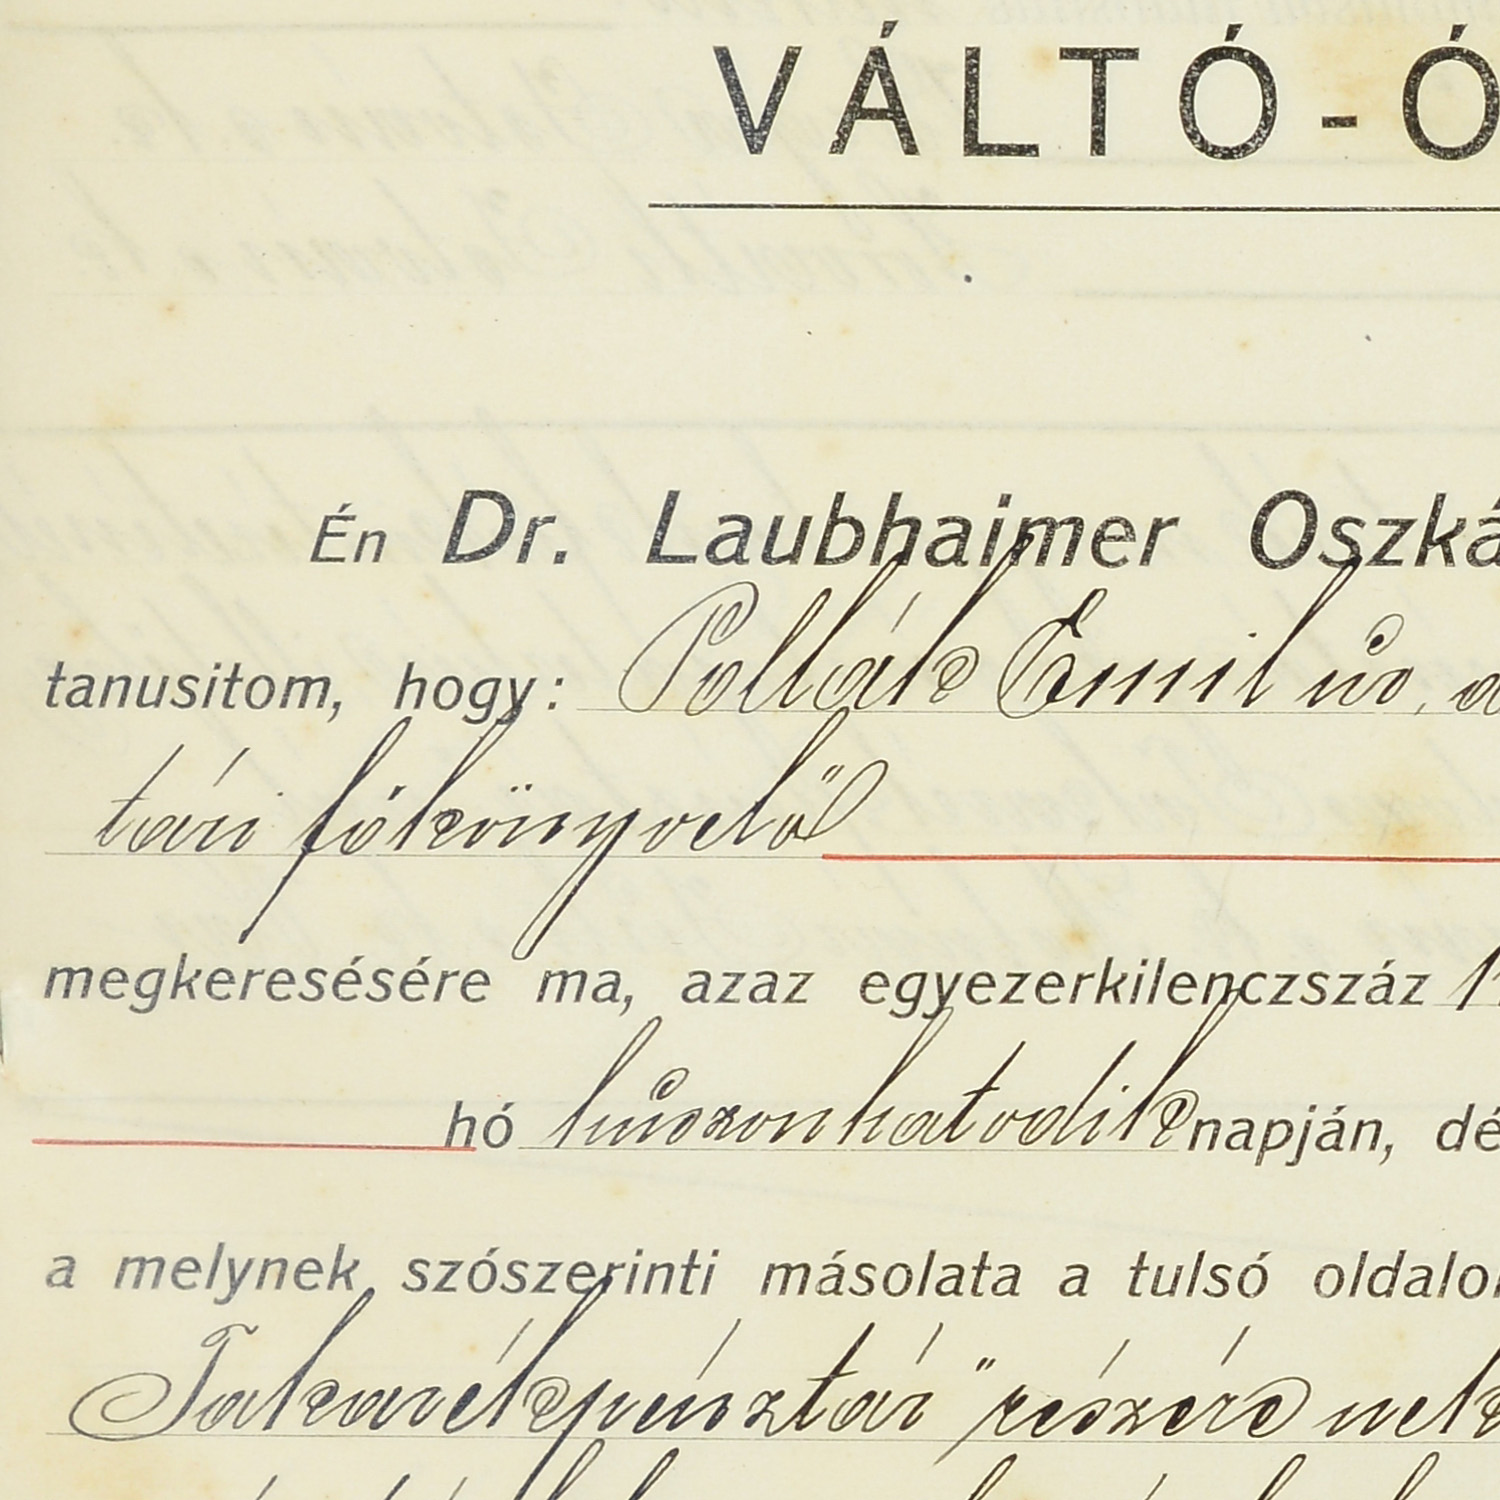 VÁLTÓ-Ó
Én Dr. Laubhaimer Oszká
tanusitom, hogy: Pollák Emil úr, a
tári főkönyvelő
megkeresésére ma, azaz egyezerkilenczszáz
hó húszonhatodik napján, dé
a melynek szószerinti másolata a tulsó oldalo
Takarékpénztár" részére nek